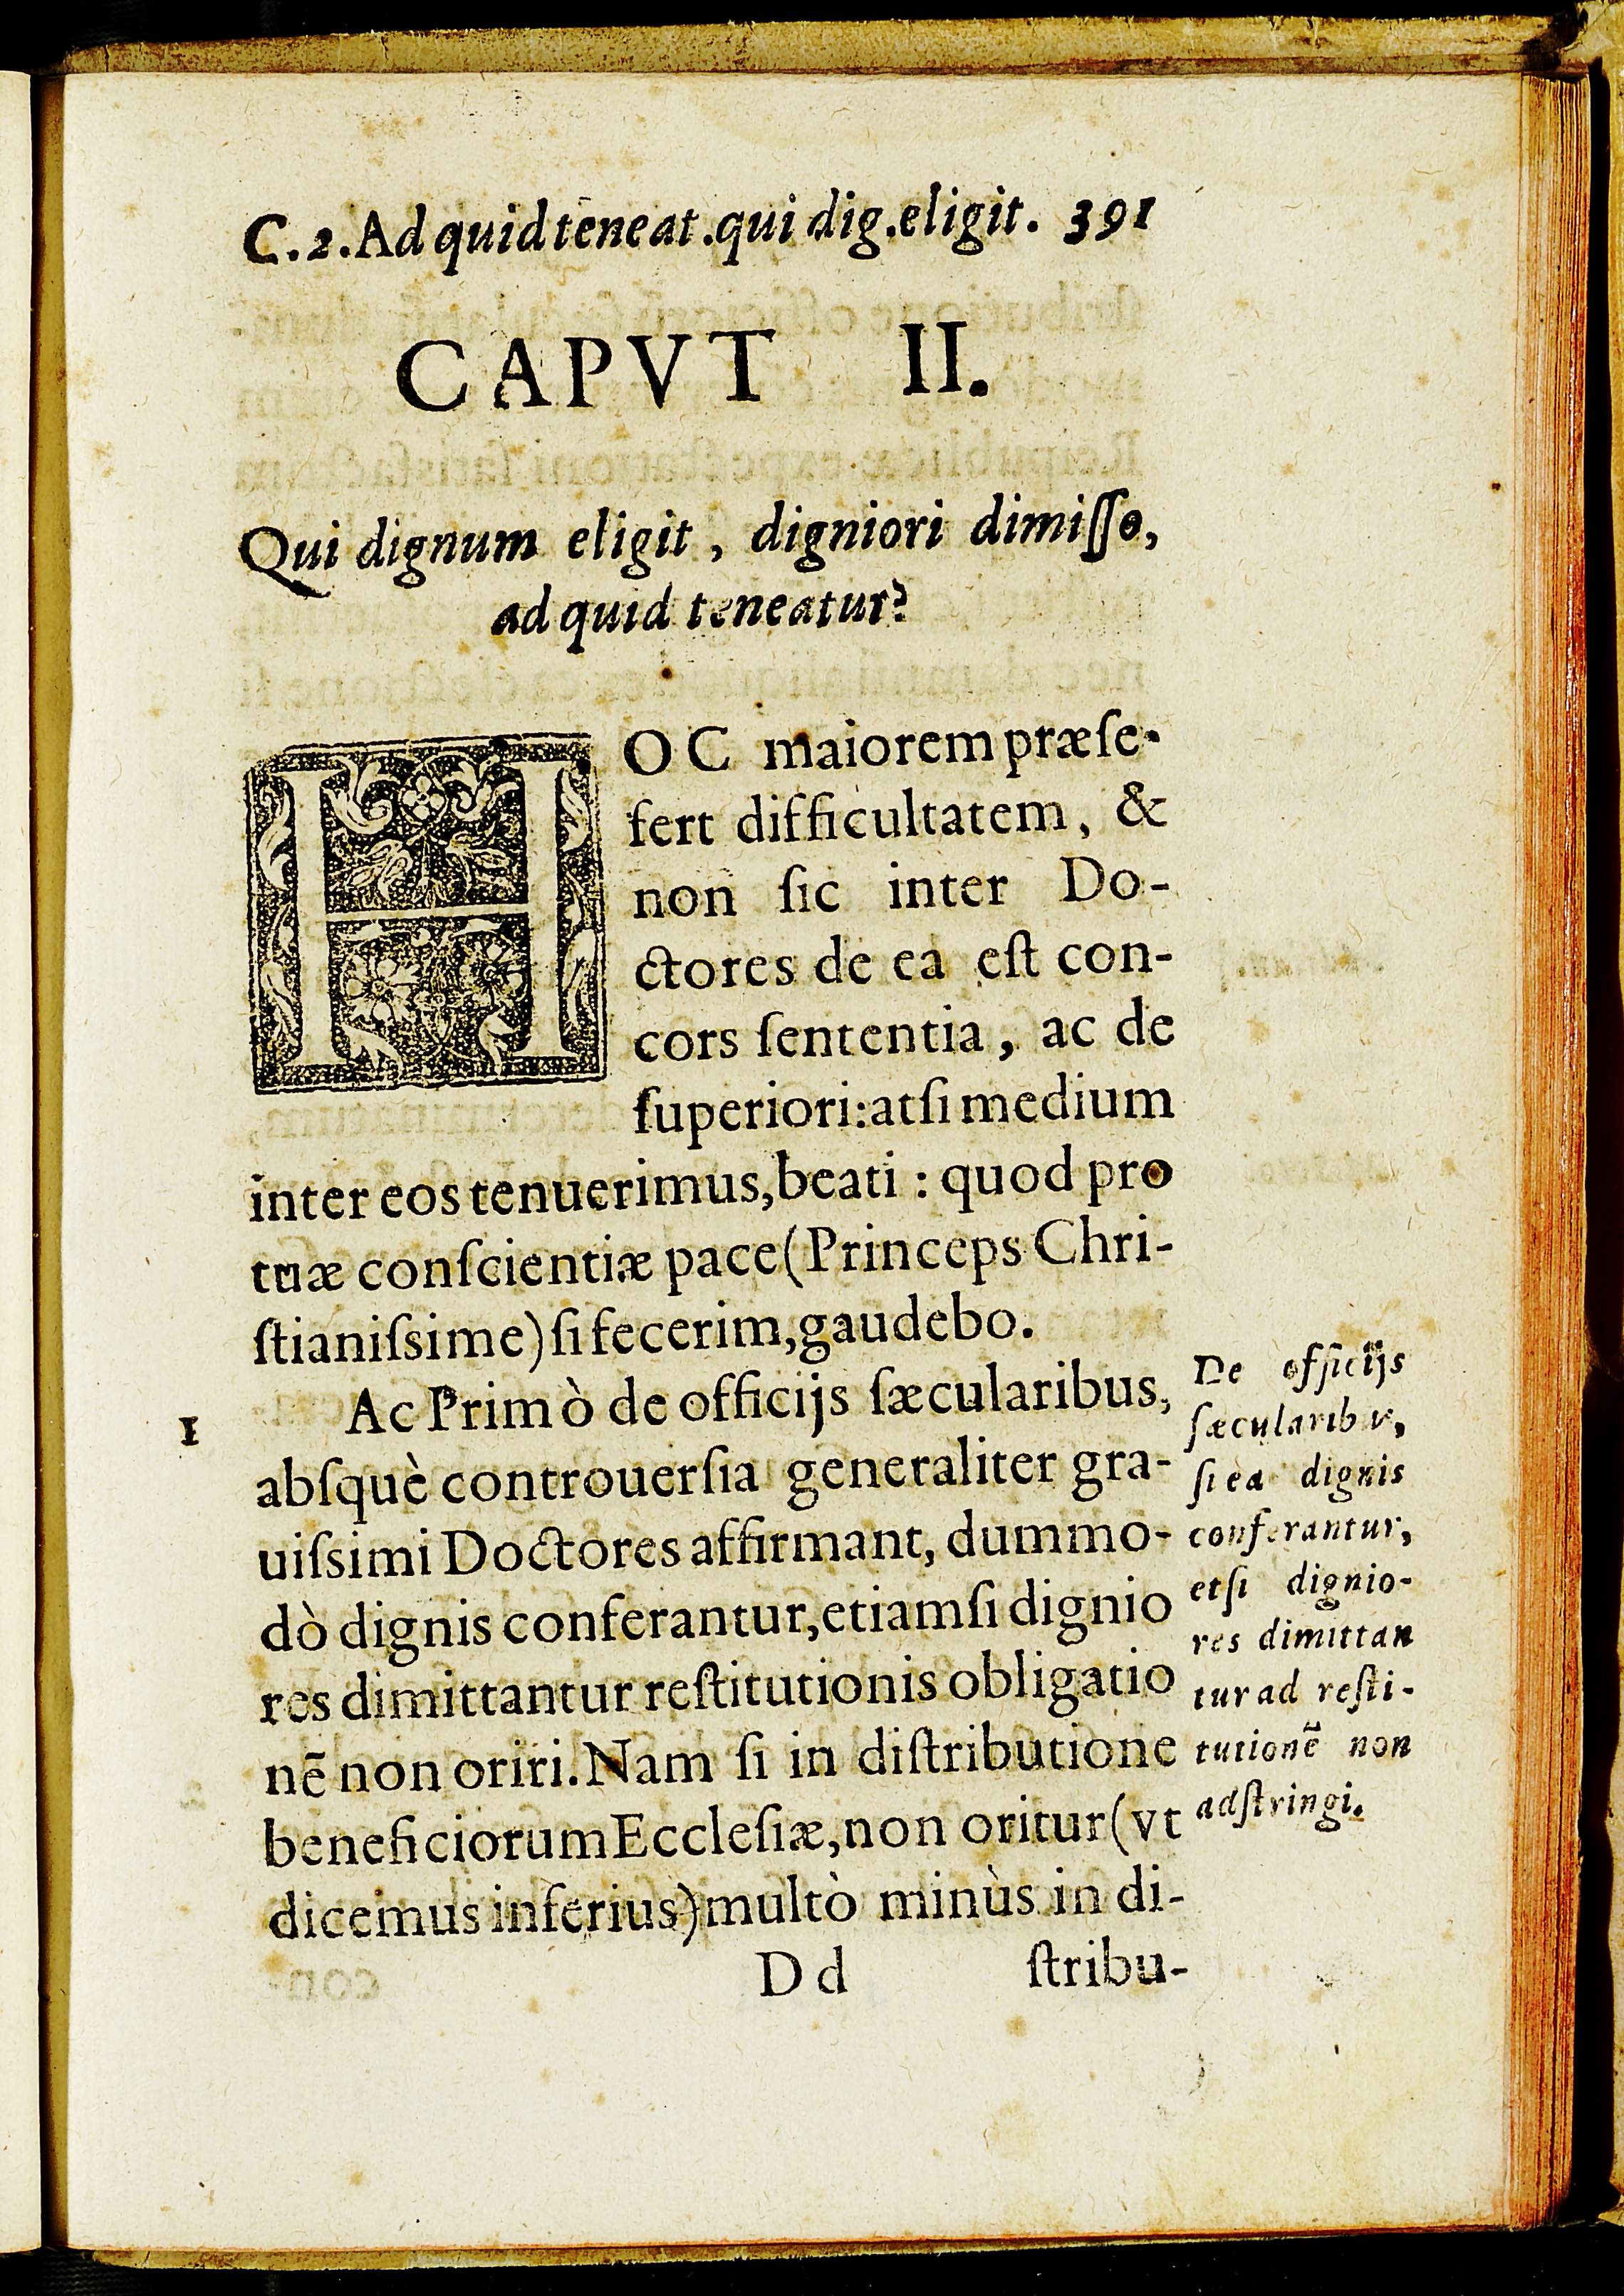 C.2. Ad quid teneat. qui dig. eligit. 391
CAPVT II.
Qui dignum eligit, digniori dimiſſo,
ad quid teneatur?
HOC maiorem præſe-
fert difficultatem, &
non ſic inter Do-
ctores de ea eſt con-
cors ſententia, ac de
ſuperiori: at ſi medium
inter eos tenuerimus, beati: quod pro
tuæ conſcientiæ pace (Princeps Chri-
ſtianiſsime) ſi fecerim, gaudebo.
1
Ac Primò de officijs ſæcularibus,
abſquè controuerſia generaliter gra-
uiſsimi Doctores affirmant, dummo-
dò dignis conferantur, etiamſi dignio
res dimittantur reſtitutionis obligatio
nẽ non oriri. Nam ſi in diſtributione
beneficiorum Eccleſiæ, non oritur (vt
dicemus inferius) multò minùs in di-
De officijs
ſæcularibu,
ſi ea dignis
conferantur,
etſi dignio-
res dimittan
tur ad reſti-
tutionẽ non
adſtringi.
Dd ſtribu-